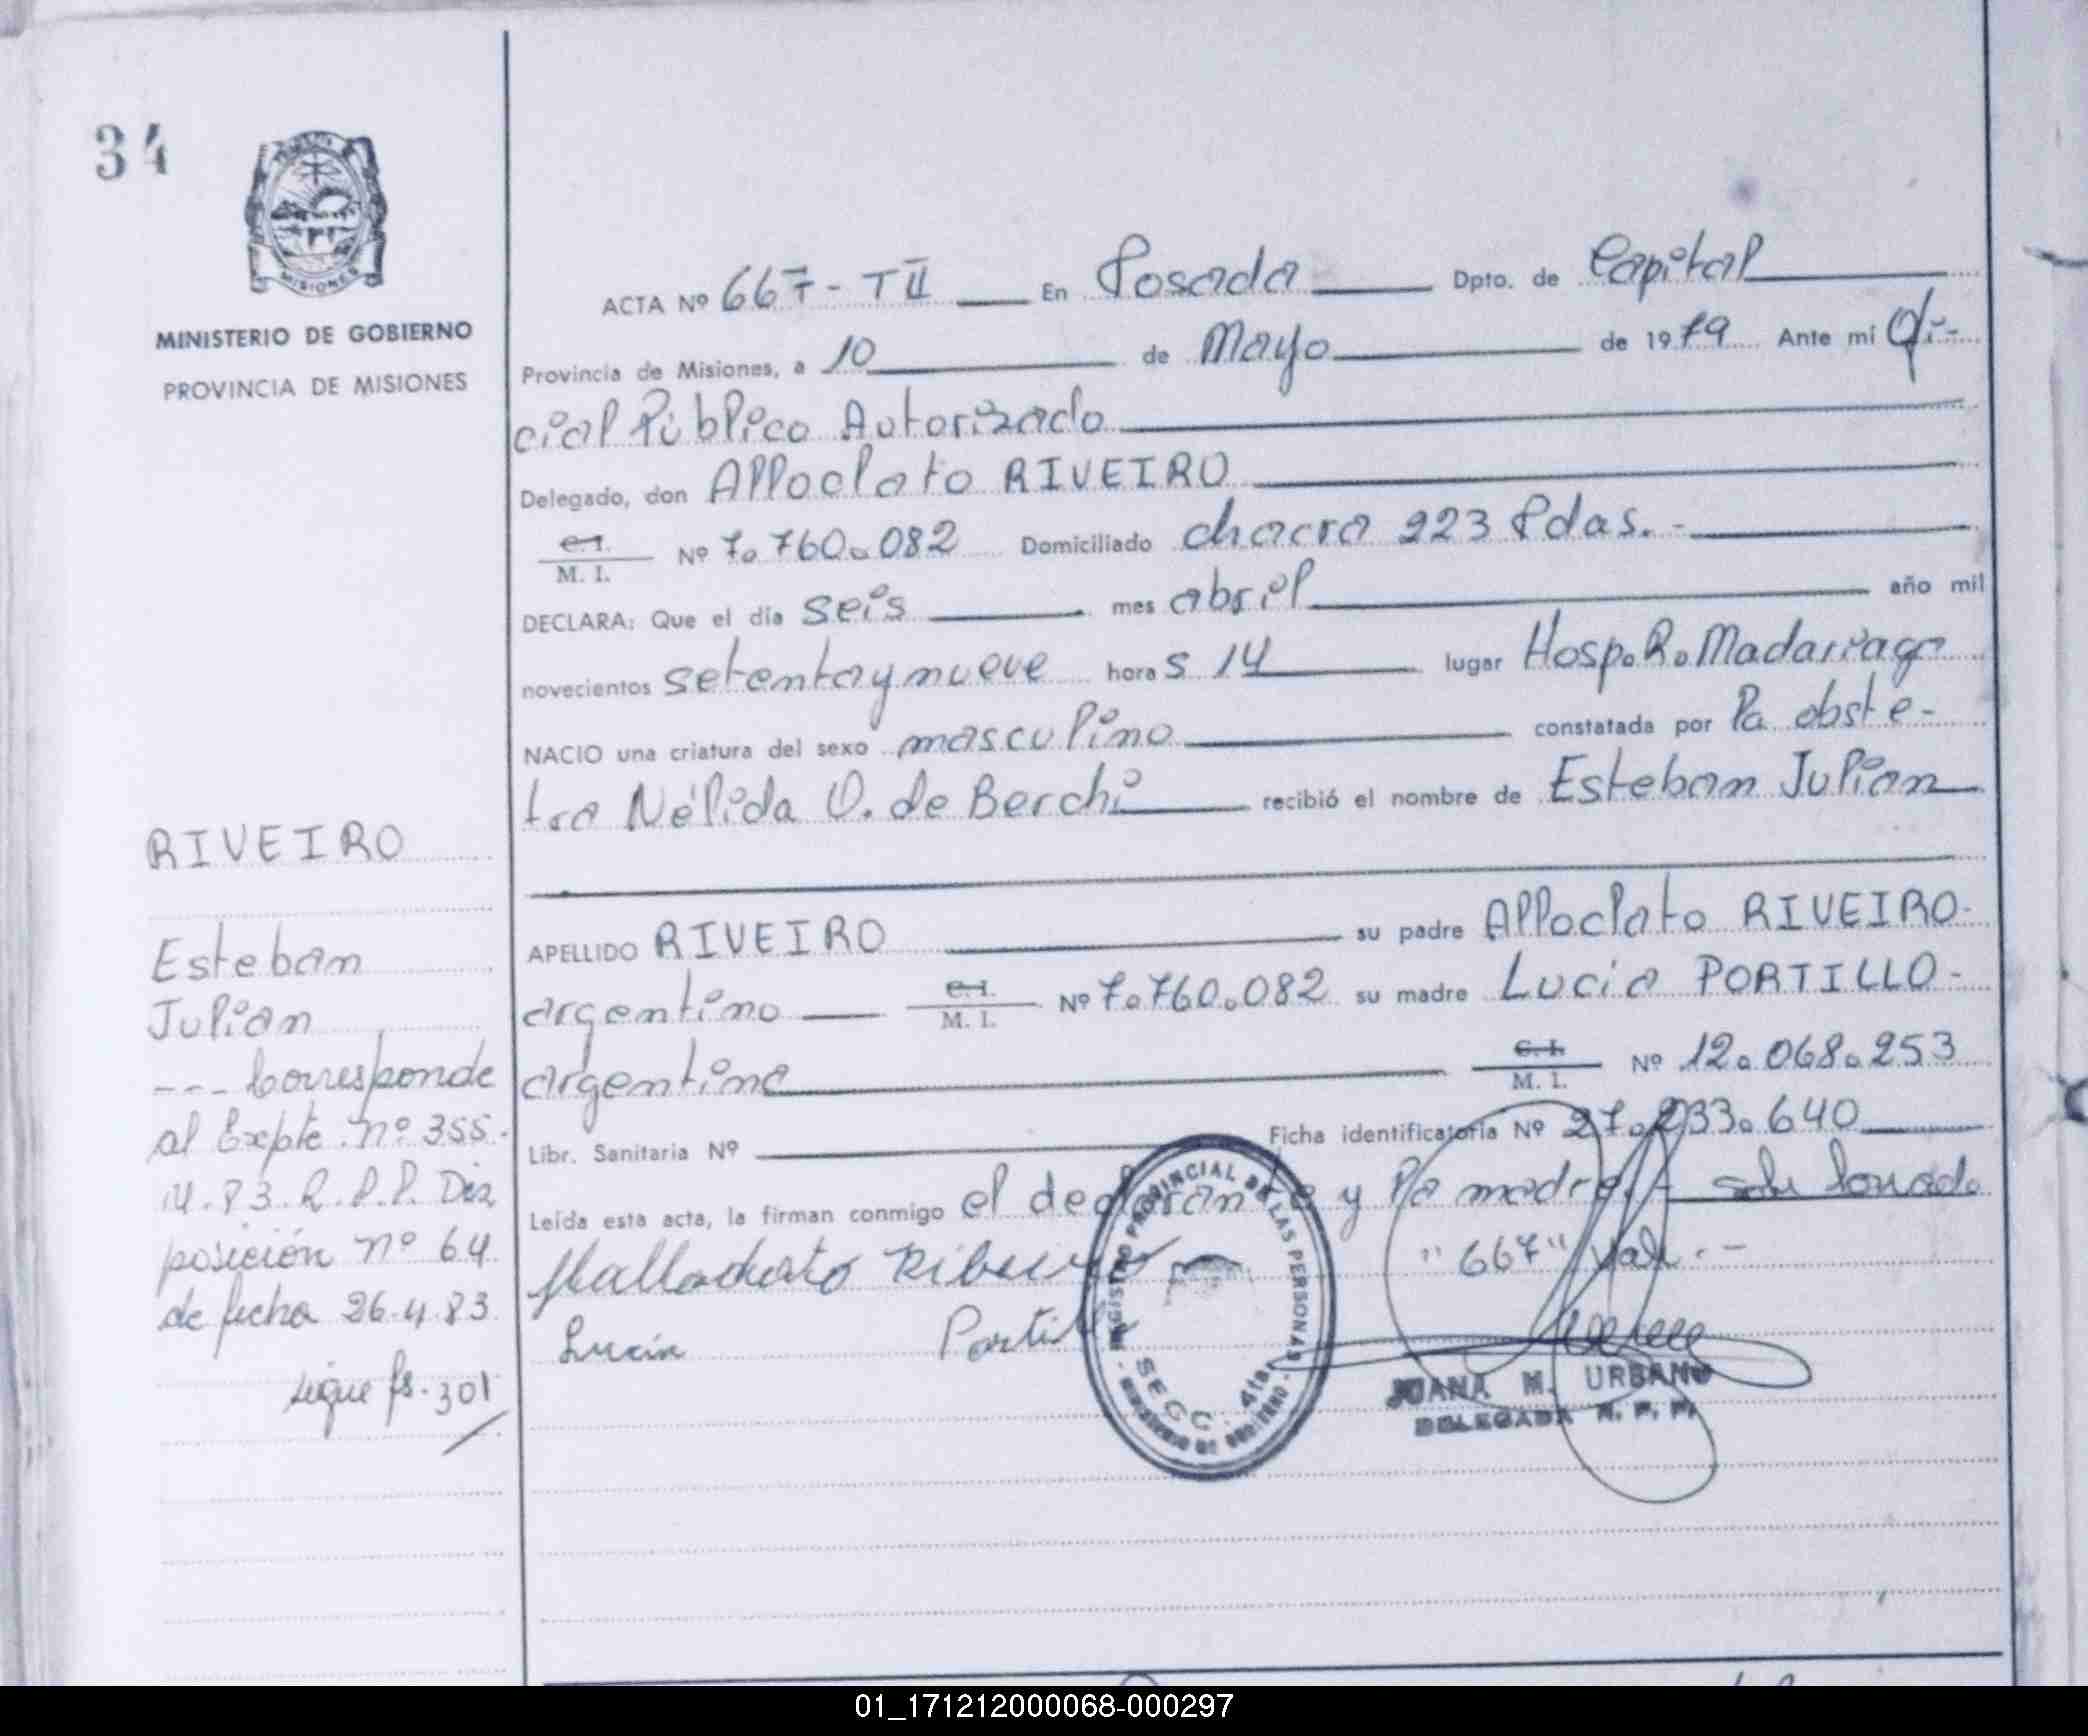 34
MISIONES
MINISTERIO DE GOBIERNO
PROVINCIA DE MISIONES
ACTA Nº 667 - T II En Posada Dpto. de Capital
Provincia de Misiones, a 10 de Mayo de 1979 Ante mí Ofi-
cial Público Autorizado
Delegado, don Alloclato RIVEIRO
C.I. M. I. Nº 7.760.082 Domiciliado chacra 223 Pdas. -
DECLARA: Que el día seis mes abril año mil
novecientos setenta y nueve hora s 14 lugar Hosp. R. Madariaga
NACIO una criatura del sexo masculino constatada por la obste-
tra Nélida O. de Berchi recibió el nombre de Esteban Julian
APELLIDO RIVEIRO su padre Alloclato RIVEIRO-
argentino C.I. M. I. Nº 7.760.082 su madre Lucia PORTILLO-
argentina C.I. M. I. Nº 12.068.253
Libr. Sanitaria Nº Ficha identificatoria Nº 27.233.640
Leída esta acta, la firman conmigo el declarante y la madre.- sobr borrado
"667" vale.-
Ribeiro
Lucia Portill
REGISTRO PROVINCIAL DE LAS PERSONAS
SECC. 4ta.
MINISTERIO DE GOBIERNO
JUANA M. URBANO
DELEGADA R. P. P.
RIVEIRO
Esteban
Julian
--- Corresponde
al Expte. nº 355-
14.83. R.P.P. Dis
posición nº 64
de fecha 26.4.83.
sigue fs. 301
01_171212000068-000297